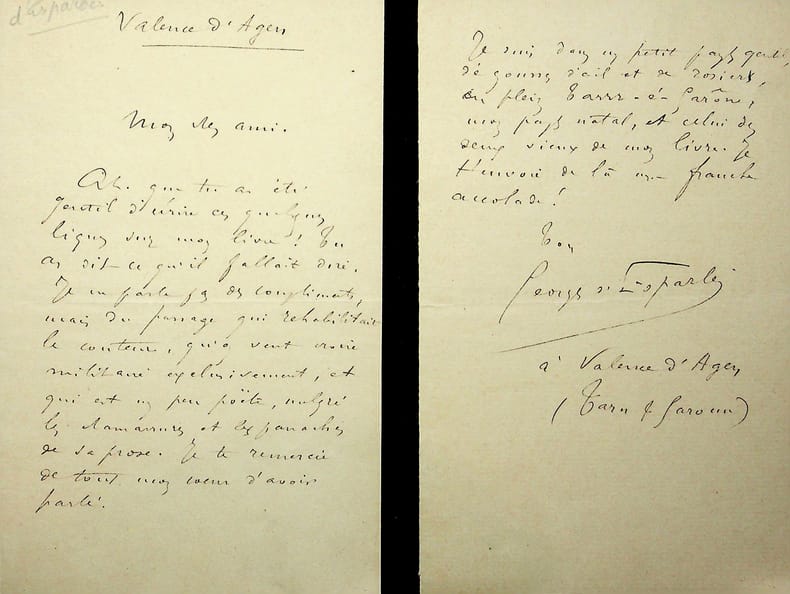 d'Esparbès
Valence d'Agen
Mon cher ami.
Ah. que tu as été
gentil d'écrire ces quelques
lignes sur mon livre ! Tu
as dit ce qu'il fallait dire.
Je ne parle pas des compliments,
mais du passage qui réhabilitait
le conteur, qu'on veut croire
militaire exclusivement, et
qui est un peu poëte, malgré
les chamarrures et les panaches
de sa prose. Je te remercie
de tout mon cœur d'avoir
parlé.
Je suis dans un petit pays
d'é gousses d'ail et de rosiers,
en plein Tarrr-é-Garôn,
mon pays natal, et celui des
deux vieux de mon livre. Je
t'envoie de là une franche
accolade !
Ton
Georges d'Esparbès
à Valence d'Agen
(Tarn & Garonne)